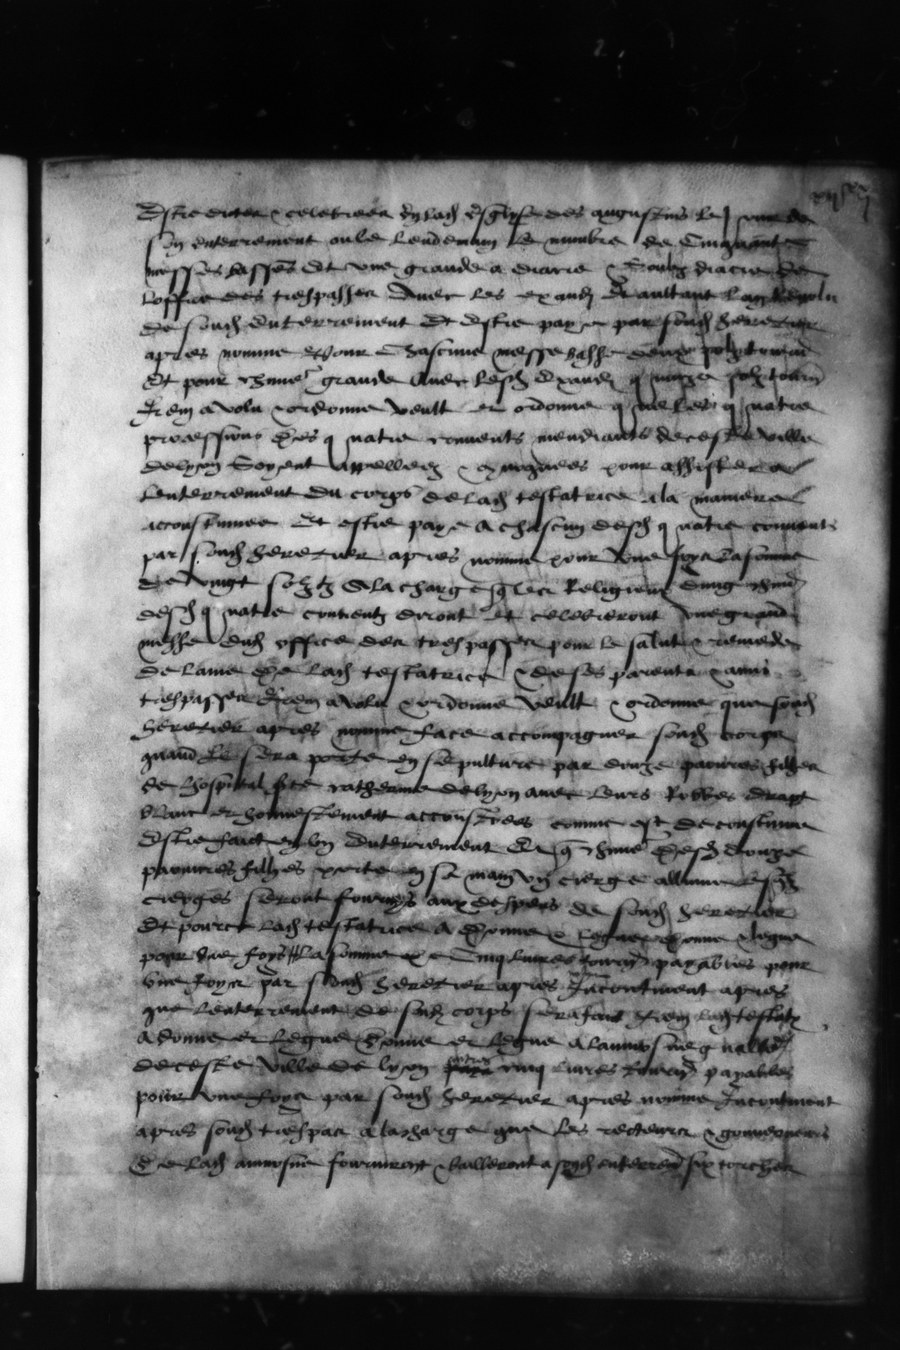 Estre dites & celebrees en lad esglise des augustins le jour de
son enterrement ou le lendemain le nombre de Cinquante
messes basses Et une grande a diacre & soubz diacre de
loffice des trespassez Avec les exaudi
de sond enterrement Et estre paye par sond heretier
apres nomme pour chascune messe basse deux solz tournoi
Et pour grande avec lesd exaudi q solz tourn
Item a volu & ordonne veult et ordonne q les q uatre
processions des q uatre convents mendiants de ceste ville
de lyon Soyent appellees & pour assister a
lenterrement du corps de lad testatrice a la maniere
accoustumee Et estre paye a chascun desd q uatre convents
par sond heretier apres nomme pour une foys la somme
de vingt solz tz A la charge q les Religieux dung chun
desd q uatre conventz diront et celebreront une grand
messe dud office des trespassez pour le salut & remede
de lame de lad testatrice & de ses parents & amis
trespassez Item a volu & ordonne veult & ordonne que sond
heretier apres nomme face accompaigner sond corps
quand Il sera porte en sepulture par douze pauvres filles
de lhospital ste catherine de lyon avec leurs Robbes drapt
blanc et honnestement accoustrees comme est de coustume
Estre faict en bon enterrement Et q chune desd douze
pauvres filles porte en sa main ung cierge allume lesqlz
cierges seront fournys aux despens de sond heretier
Et pource lad testatrice a donne & legue donne & legue
pour une foys la somme de Cinq livres tourn payables pour
une foys par sond heretier apres Incontinent apres
que lenterrement de sond corps sera faict Item lad testatx
a donne et legue donne et legue a laumosne g nalle
de ceste ville de lyon cinq livres tourn payables
pour une foys par sond heretier apres nomme Incontinent
apres sond trespas a la charge que les recteurs & gouverneurs
de lad aumosne fourniront & bailleront a sond enterremt six torches